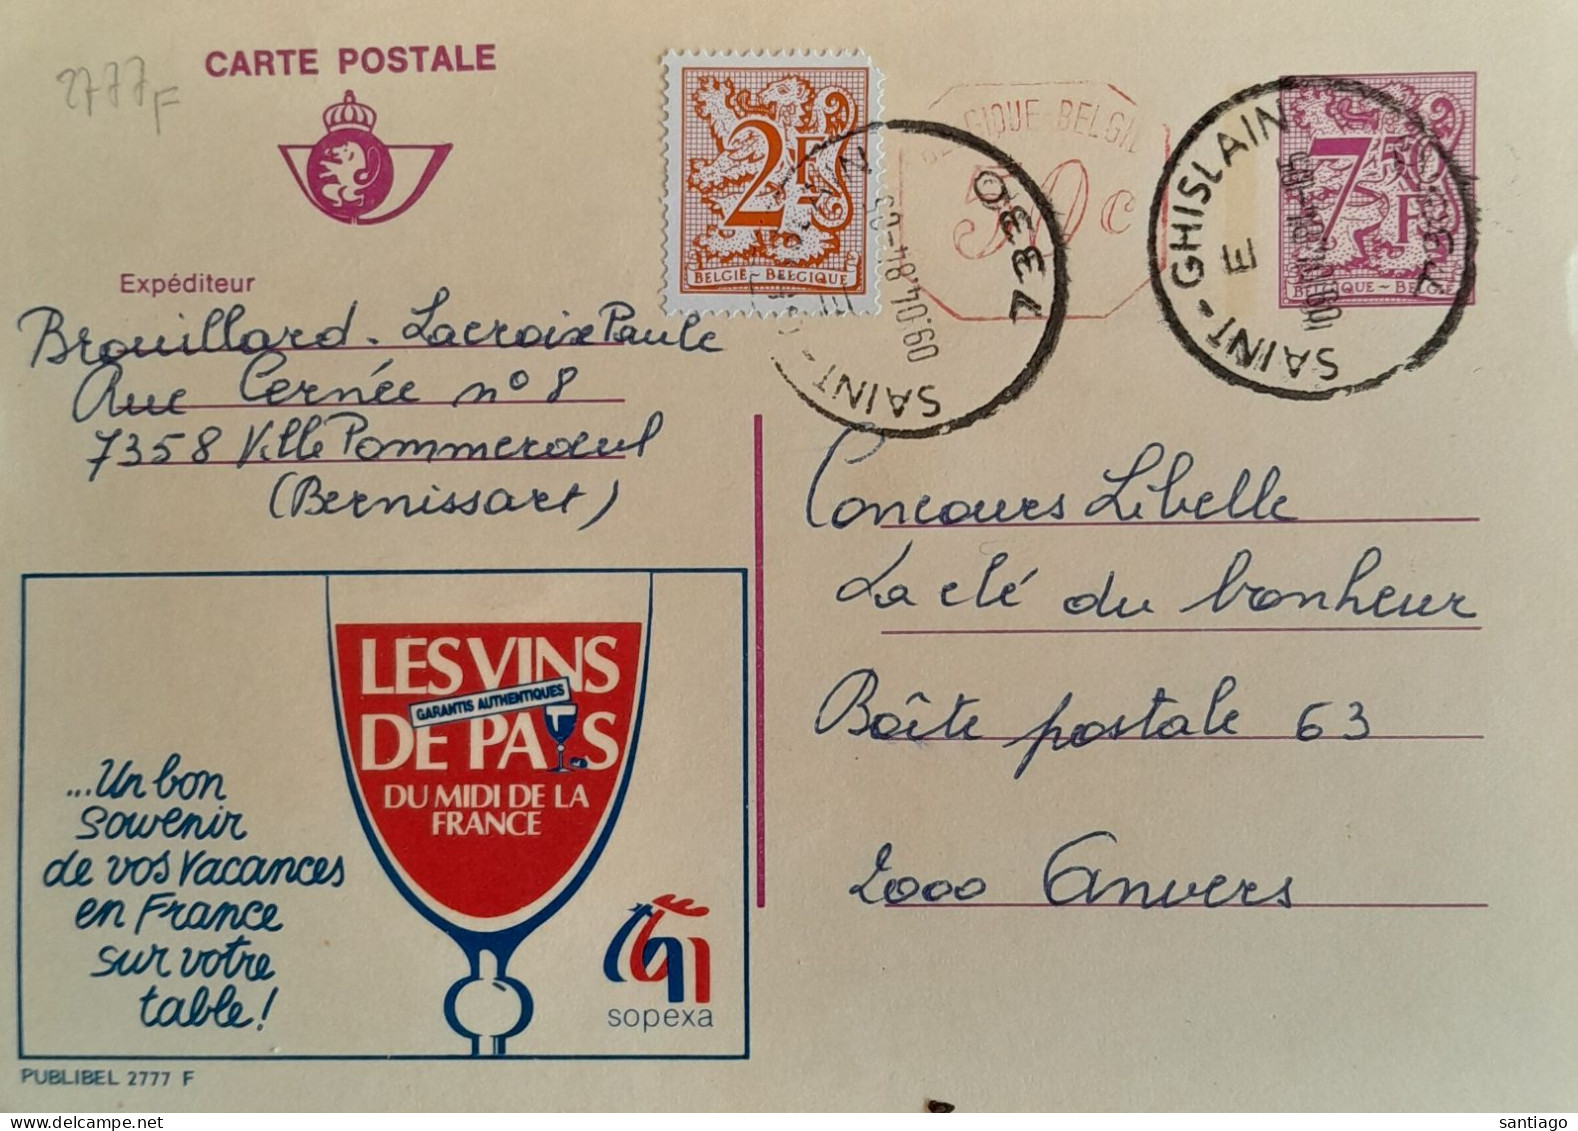 2777F
CARTE POSTALE
2F
BELGIË-BELGIQUE
BELGIQUE BELGIË
50c
7,50
7F
BELGIQUE-BELGIË
SAINT-
7330
09.04.84
SAINT-GHISLAIN
E
7330
Expéditeur
Brouillard-Lacroix Paule
Rue Cernée n° 8
7358 Ville Pommeroeul
(Bernissart)
Concours Libelle
La clé du bonheur
Boîte postale 63
2000 Anvers
LES VINS
GARANTIS AUTHENTIQUES
DE PAYS
DU MIDI DE LA
FRANCE
...Un bon
souvenir
de vos vacances
en France
sur votre
table!
sopexa
PUBLIBEL 2777 F
santiago